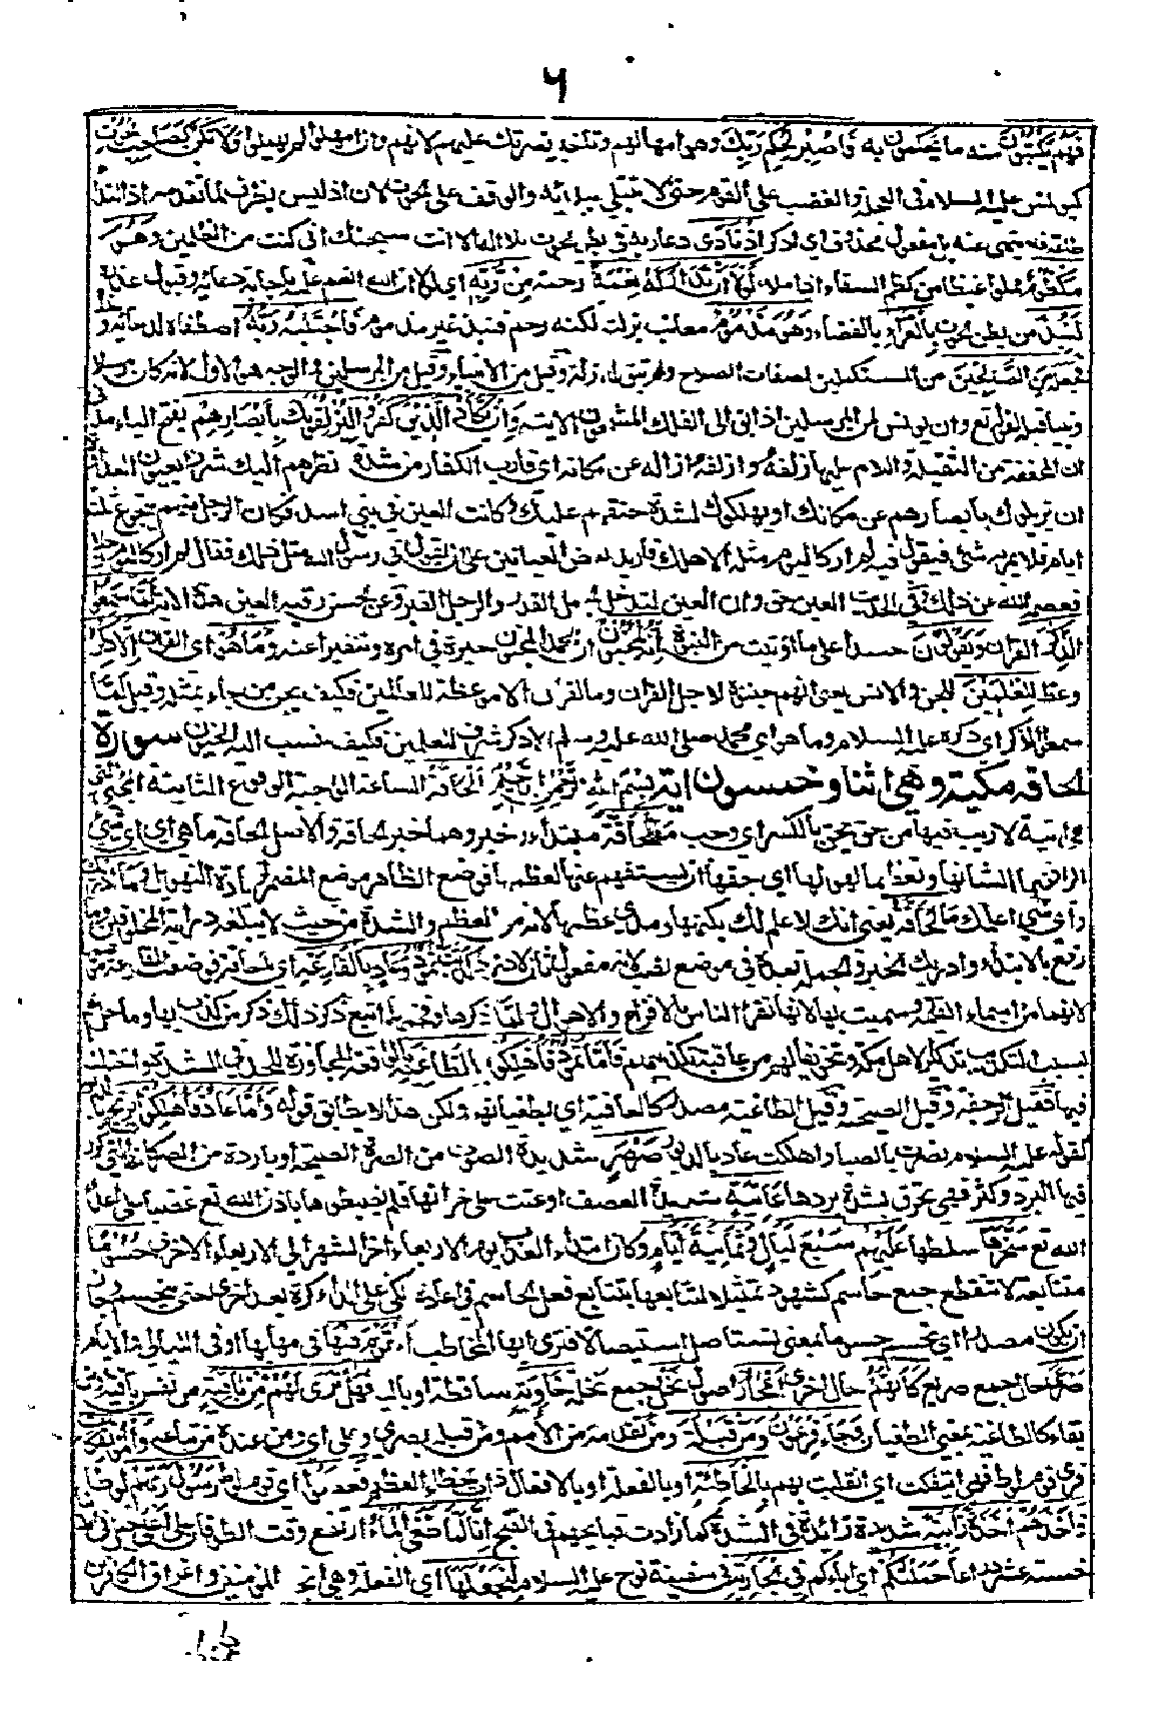 ٦
فهم يكتبون منه ما يحكمون به فاصبر لحكم ربك وهو امهالهم وتاخير نصرتك عليهم لانهم وان امهلوا لم يهملوا ولا تكن كصاحب الحوت
كيونس عليه السلام في العجلة والغضب على القوم حتى لا تبتلى ببلائه والوقف على الحوت لان اذ ليس بظرف لما تقدمه اذ النداء
طاعة فلا ينهى عنه بل مفعول محذوف اي اذكر اذ نادى دعا ربه في بطن الحوت بلا اله الا انت سبحنك اني كنت من الظلمين وهو
مكظوم مملو غيظا من كظم السقاء اذا ملأه لولا ان تدركه نعمة رحمة من ربه اي لولا ان الله انعم عليه باجابة دعائه وقبول عذره
لنبذ من بطن الحوت بالعراء بالفضاء وهو مذموم معاتب بزلته لكنه رحم فنبذ غير مذموم فاجتبه ربه اصطفاه لدعائه
فجعله من الصلحين من المستكملين لصفات الصلاح ولم يبق له زلة وقيل من الانبياء وقيل من المرسلين والوجه هو الاول لانه كان مرسلا
ونبيا قبله لقوله تع وان يونس لمن المرسلين اذ ابق الى الفلك المشحون الاية وان يكاد الذين كفروا ليزلقونك بابصارهم بفتح الياء مدني
ان المخففة من الثقيلة واللام علمها زلقه وازلقه ازاله عن مكانه اي قارب الكفار من شدة نظرهم اليك شزرا بعيون العداوة
ان يزيلوك بابصارهم عن مكانك او يهلكوك لشدة حنقهم عليك وكانت العين في بني اسد فكان الرجل منهم يتجوع ثلثة
ايام فلا يمر به شئ فيقول فيه لم ار كاليوم مثله الا هلك فاريد بعض العيانين على ان يقول في رسول الله مثل ذلك فقال لم ار كاليوم رجلا
فعصمه الله عن ذلك وفي الحديث العين حق وان العين لتدخل الجمل القدر والرجل القبر وعن الحسن رقية العين هذه الاية لما سمعوا
الذكر القران ويقولون حسدا على ما اوتيت من النبوة انه لمجنون ان محمدا لمجنون حيرة في امره وتنفيرا عنه وما هو اي القران الا ذكر
وعظ للعلمين للجن والانس يعني انهم جننوه لاجل القران وما القران الا موعظة للعالمين فكيف يجنن من جاء بمثله وقيل لما
سمعوا الذكر اي ذكره عليه السلام وما هو اي محمد صلى الله عليه وسلم الا ذكر شرف للعلمين فكيف ينسب اليه الجنون سورة
الحاقة مكية وهي اثنا وخمسون اية بسم الله الرحمن الرحيم الحاقة الساعة الواجبة الوقوع الثابتة المجئ التي
هي اتية لا ريب فيها من حق يحق بالكسر اي وجب ما الحاقة مبتدأ وخبر وهما خبر الحاقة والاصل الحاقة ما هي اي اي شئ
هي تفخيما لشانها وتعظيما لهولها اي حقها ان يستفهم عنها لعظمها فوضع الظاهر موضع المضمر لزيادة التهويل وما ادرىك
واي شئ اعلمك ما الحاقة يعني انك لا علم لك بكنهها ومدى عظمها لانه من العظم والشدة من حيث لا يبلغه دراية المخلوقين وما
رفع بالابتداء وادريك الخبر والجملة بعده في موضع نصب لانه مفعول ثان لادرى كذبت ثمود وعاد بالقارعة اي بالحاقة فوضعت القارعة موضعها
لانها من اسماء القيمة وسميت بها لانها تقرع الناس بالافزاع والاهوال ولما ذكرها وفخمها اتبع ذكر ذلك ذكر من كذب بها وما حل بهم
بسبب التكذيب تذكيرا لاهل مكة وتخويفا لهم من عاقبة تكذيبهم فاما ثمود فاهلكوا بالطاغية بالواقعة المجاوزة للحد في الشدة واختلف
فيها فقيل الرجفة وقيل الصيحة وقيل الطاغية مصدر كالعافية اي بطغيانهم ولكن هذا لا يطابق قوله واما عاد فاهلكوا بريح
لقوله عليه السلام نصرت بالصبا واهلكت عاد بالدبور صرصر شديدة الصوت من الصرة الصيحة او باردة من الصر كانها التي كرر
فيها البرد وكثر فهي تحرق بشدة بردها عاتية شديدة العصف او عتت على خزانها فلم يضبطوها باذن الله تع غضبا على اعداء
الله تع سخرها سلطها عليهم سبع ليال وثمانية ايام وكان ابتداء العذاب يوم الاربعاء اخر الشهر الى الاربعاء الاخرى حسوما
متتابعة لا تنقطع جمع حاسم كشهود تمثيلا لتتابعها بتتابع فعل الحاسم في اعادة الكي على الداء كرة بعد اخرى حتى ينحسم وجاز
ان يكون مصدرا اي تحسم حسوما بمعنى تستاصل استيصالا فترى ايها المخاطب القوم فيها في مهابها او في الليالي والايام
صرعى حال جمع صريع كانهم حال اخرى اعجاز اصول نخل جمع نخلة خاوية ساقطة او بالية فهل ترى لهم من باقية من نفس باقية او من
بقاء كالطاغية بمعنى الطغيان وجاء فرعون ومن قبله ومن تقدمه من الامم ومن قبله بصري وعلي اي ومن عنده من تباعه والمؤتفكت
قرى قوم لوط فهي ائتفكت اي انقلبت بهم بالخاطئة او بالفعلة او بالافعال ذات الخطاء العظيم فعصوا اي قوم لوط رسول ربهم لوطا
فاخذهم اخذة رابية شديدة زائدة في الشدة كما زادت قبايحهم في القبح انا لما طغى الماء ارتفع وقت الطوفان على اعلى جبل في الدنيا
خمسة عشر ذراعا حملنكم اي اباءكم في الجارية في سفينة نوح عليه السلام لنجعلها اي الفعلة وهي انجاء المؤمنين واغراق الكافرين